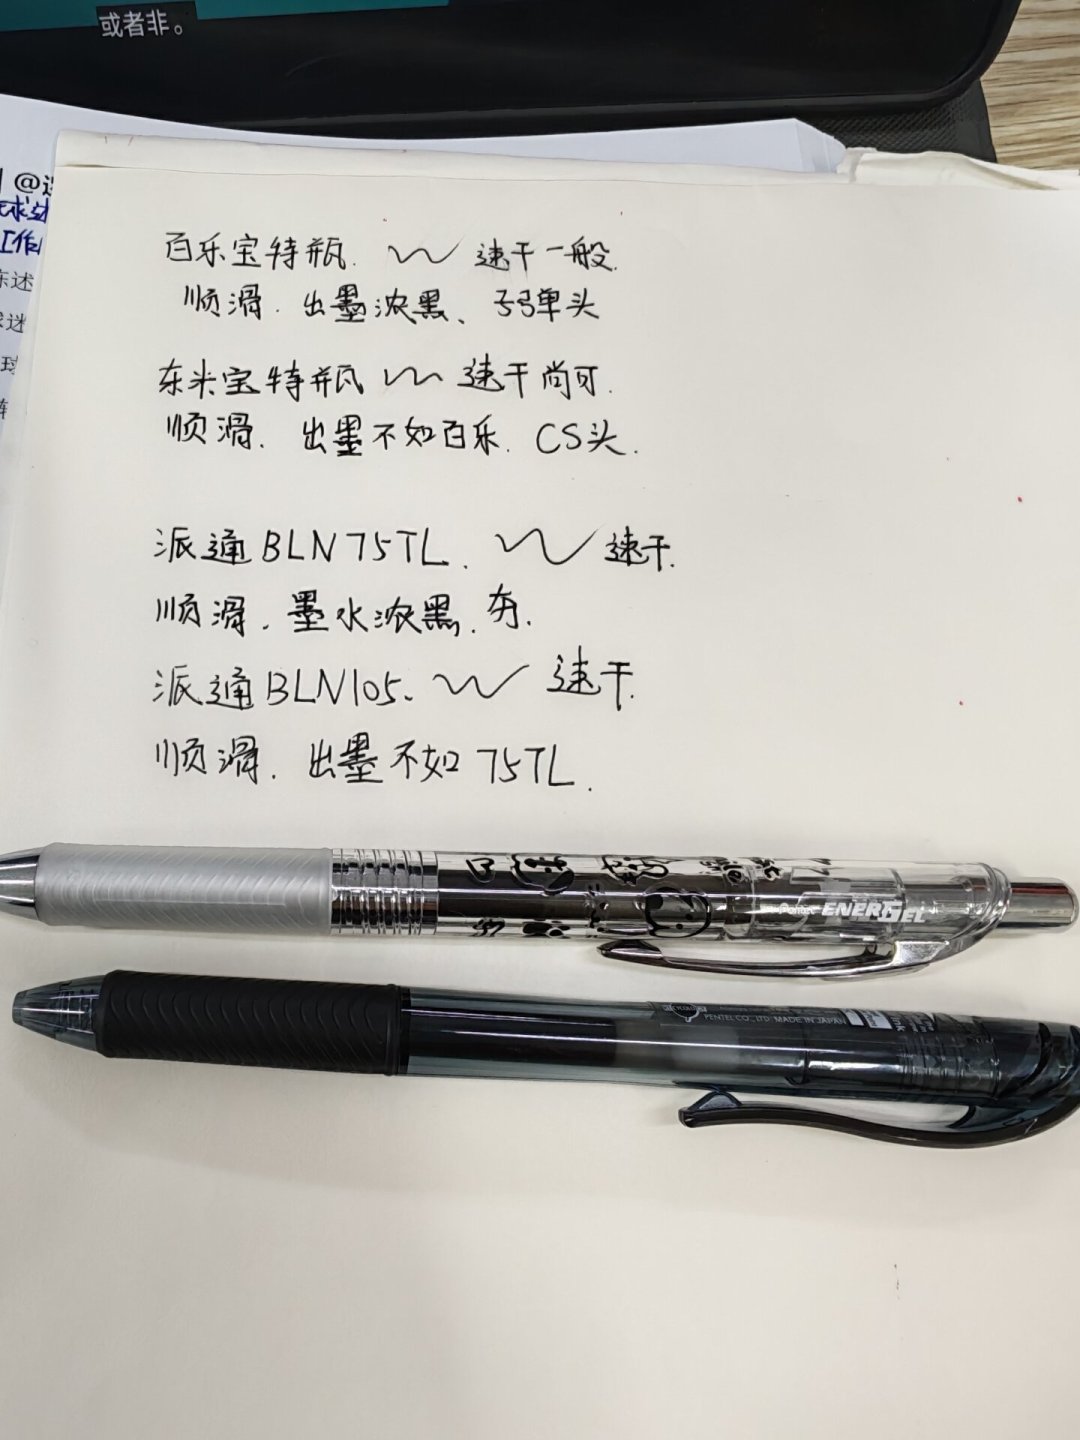 或者非。
百乐宝特瓶. 速干一般.
顺滑. 出墨浓黑、子弹头
东米宝特瓶 速干尚可.
顺滑. 出墨不如百乐. CS头.
派通BLN75TL. 速干.
顺滑. 墨水浓黑. 夯.
派通BLN105. 速干.
顺滑. 出墨不如 75TL.
Pentel ENERGEL
PENTEL CO., LTD. MADE IN JAPAN